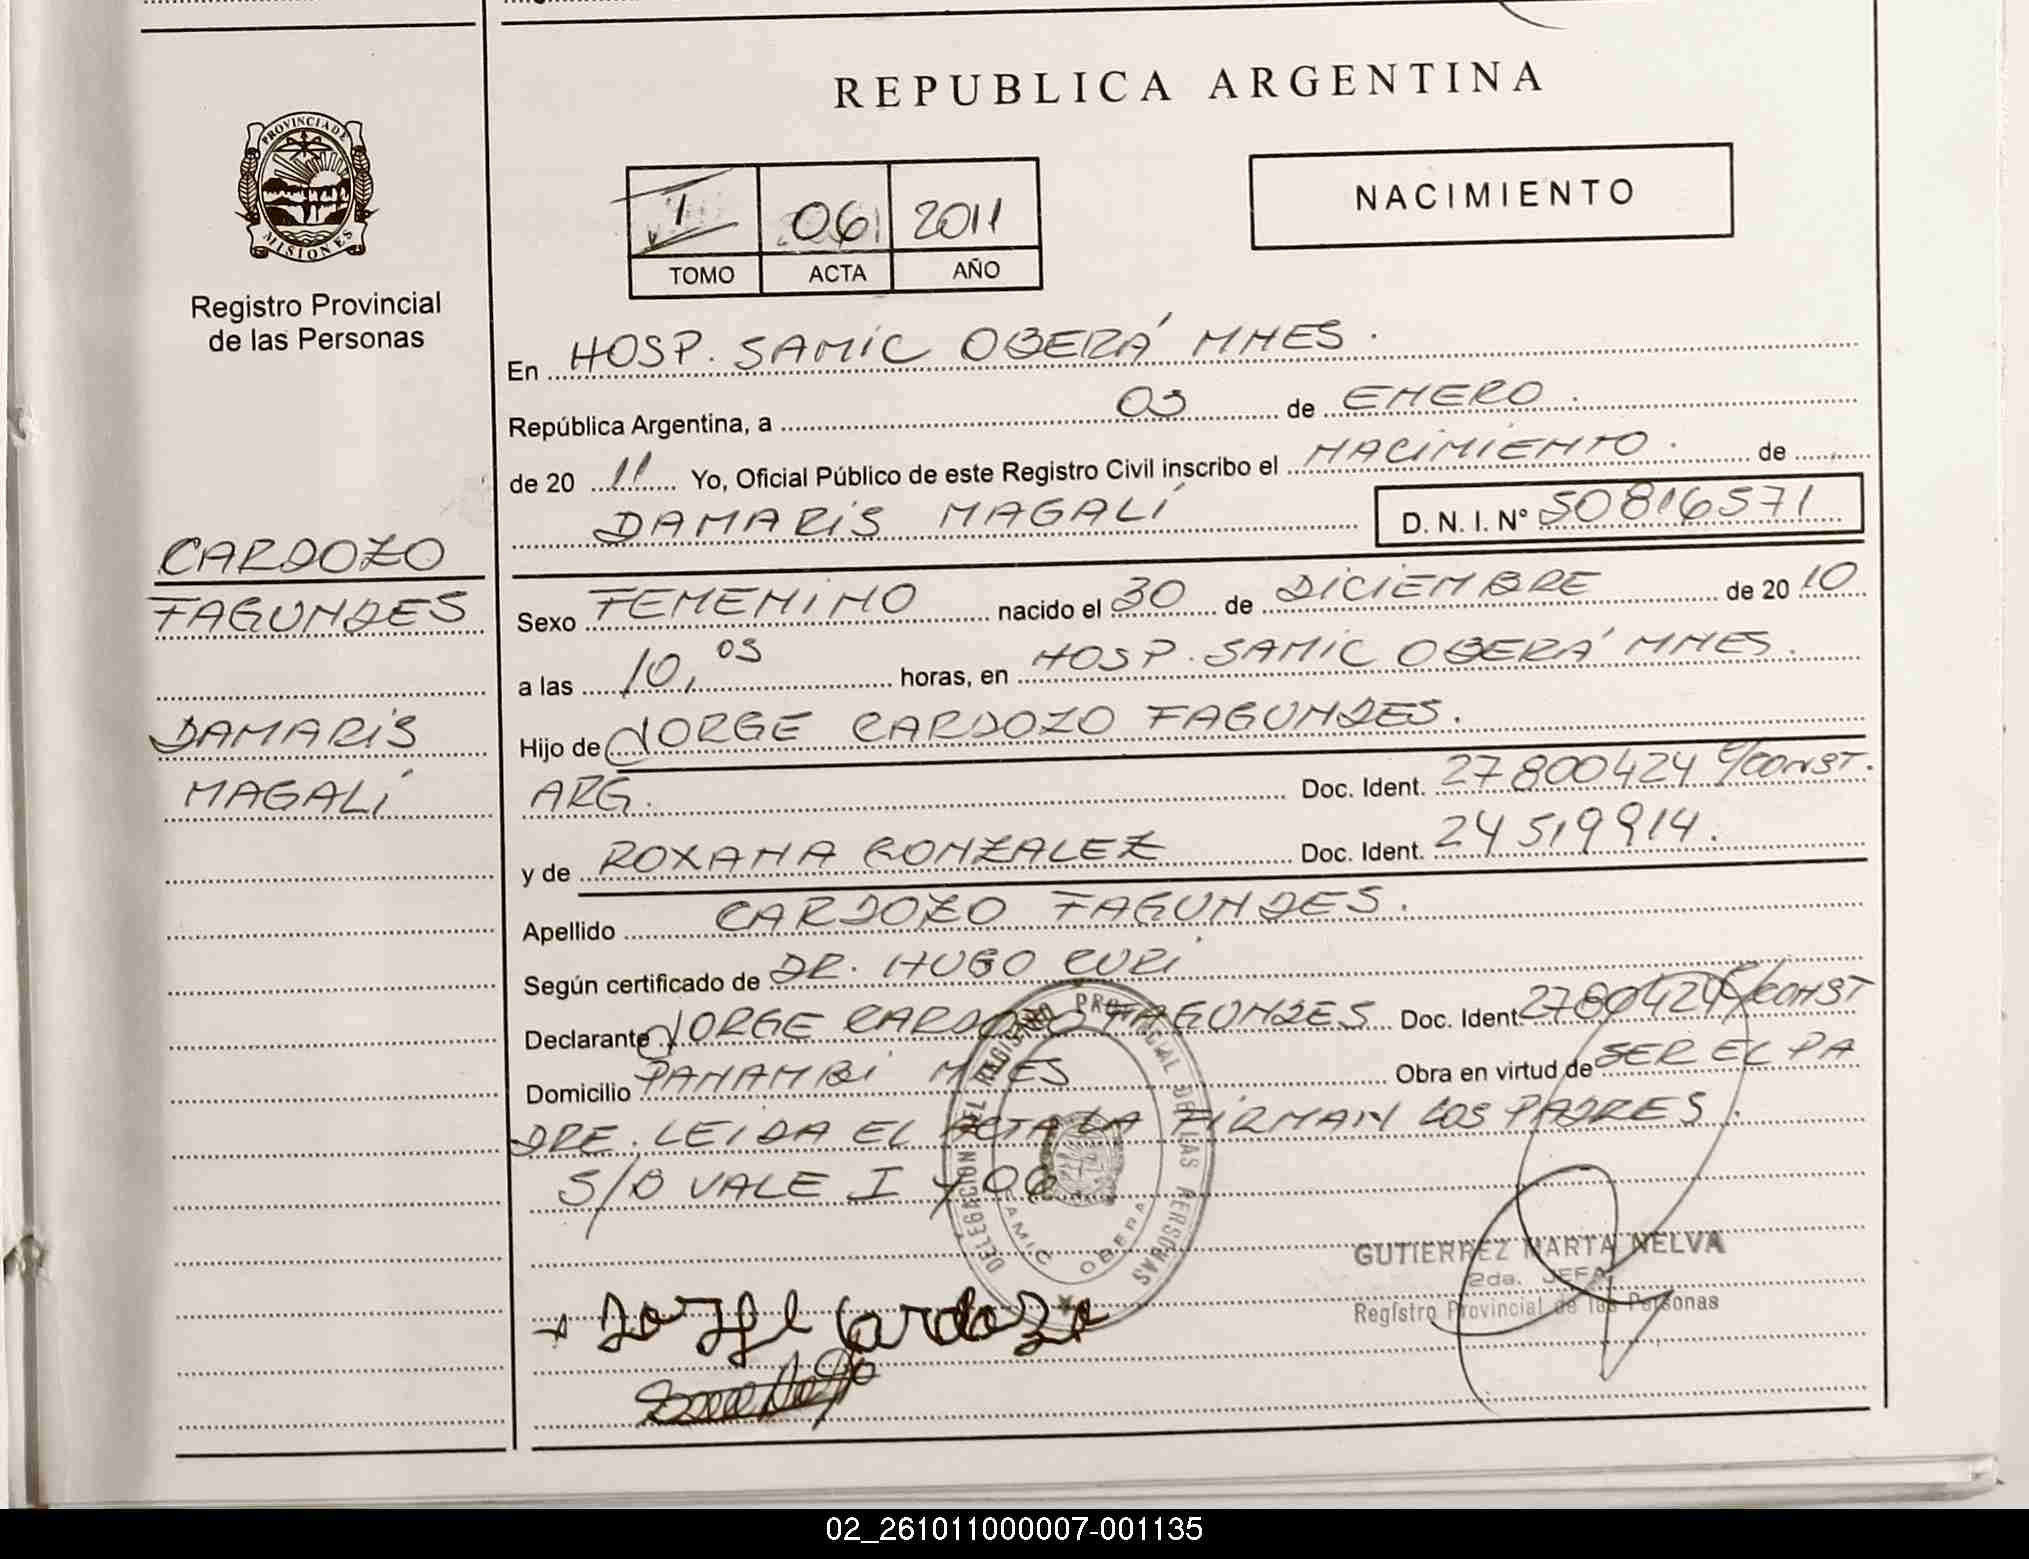 REPUBLICA ARGENTINA
PROVINCIA DE
MISIONES
Registro Provincial
de las Personas
NACIMIENTO
I 06 2011
TOMO ACTA AÑO
En HOSP. SAMIC OBERÁ MNES.
República Argentina, a 03 de ENERO.
de 20 11 Yo, Oficial Público de este Registro Civil inscribo el NACIMIENTO. de
DAMARIS MAGALÍ D. N. I. Nº 50816571
CARDOZO
FAGUNDES
DAMARIS
MAGALÍ
Sexo FEMENINO nacido el 30 de DICIEMBRE de 20 10
a las 10,05 horas, en HOSP. SAMIC OBERÁ MNES.
Hijo de JORGE CARDOZO FAGUNDES.
ARG. Doc. Ident. 27800424 C/CONST.
y de ROXANA GONZALEZ Doc. Ident. 24519914.
Apellido CARDOZO FAGUNDES.
Según certificado de DR. HUGO CURI
Declarante JORGE CARDOZO FAGUNDES Doc. Ident. 27800424 C/CONST
Domicilio PANAMBI MNES Obra en virtud de SER EL PA
DRE. LEIDA EL ACTA LA FIRMAN LOS PADRES.
S/B VALE I y 06
DELEGACION DEL REGISTRO PROVINCIAL DE LAS PERSONAS
SAMIC OBERA
GUTIERREZ MARTA NELVA
2da. JEFA
Registro Provincial de las Personas
+ Jorge Cardozo
02_261011000007-001135